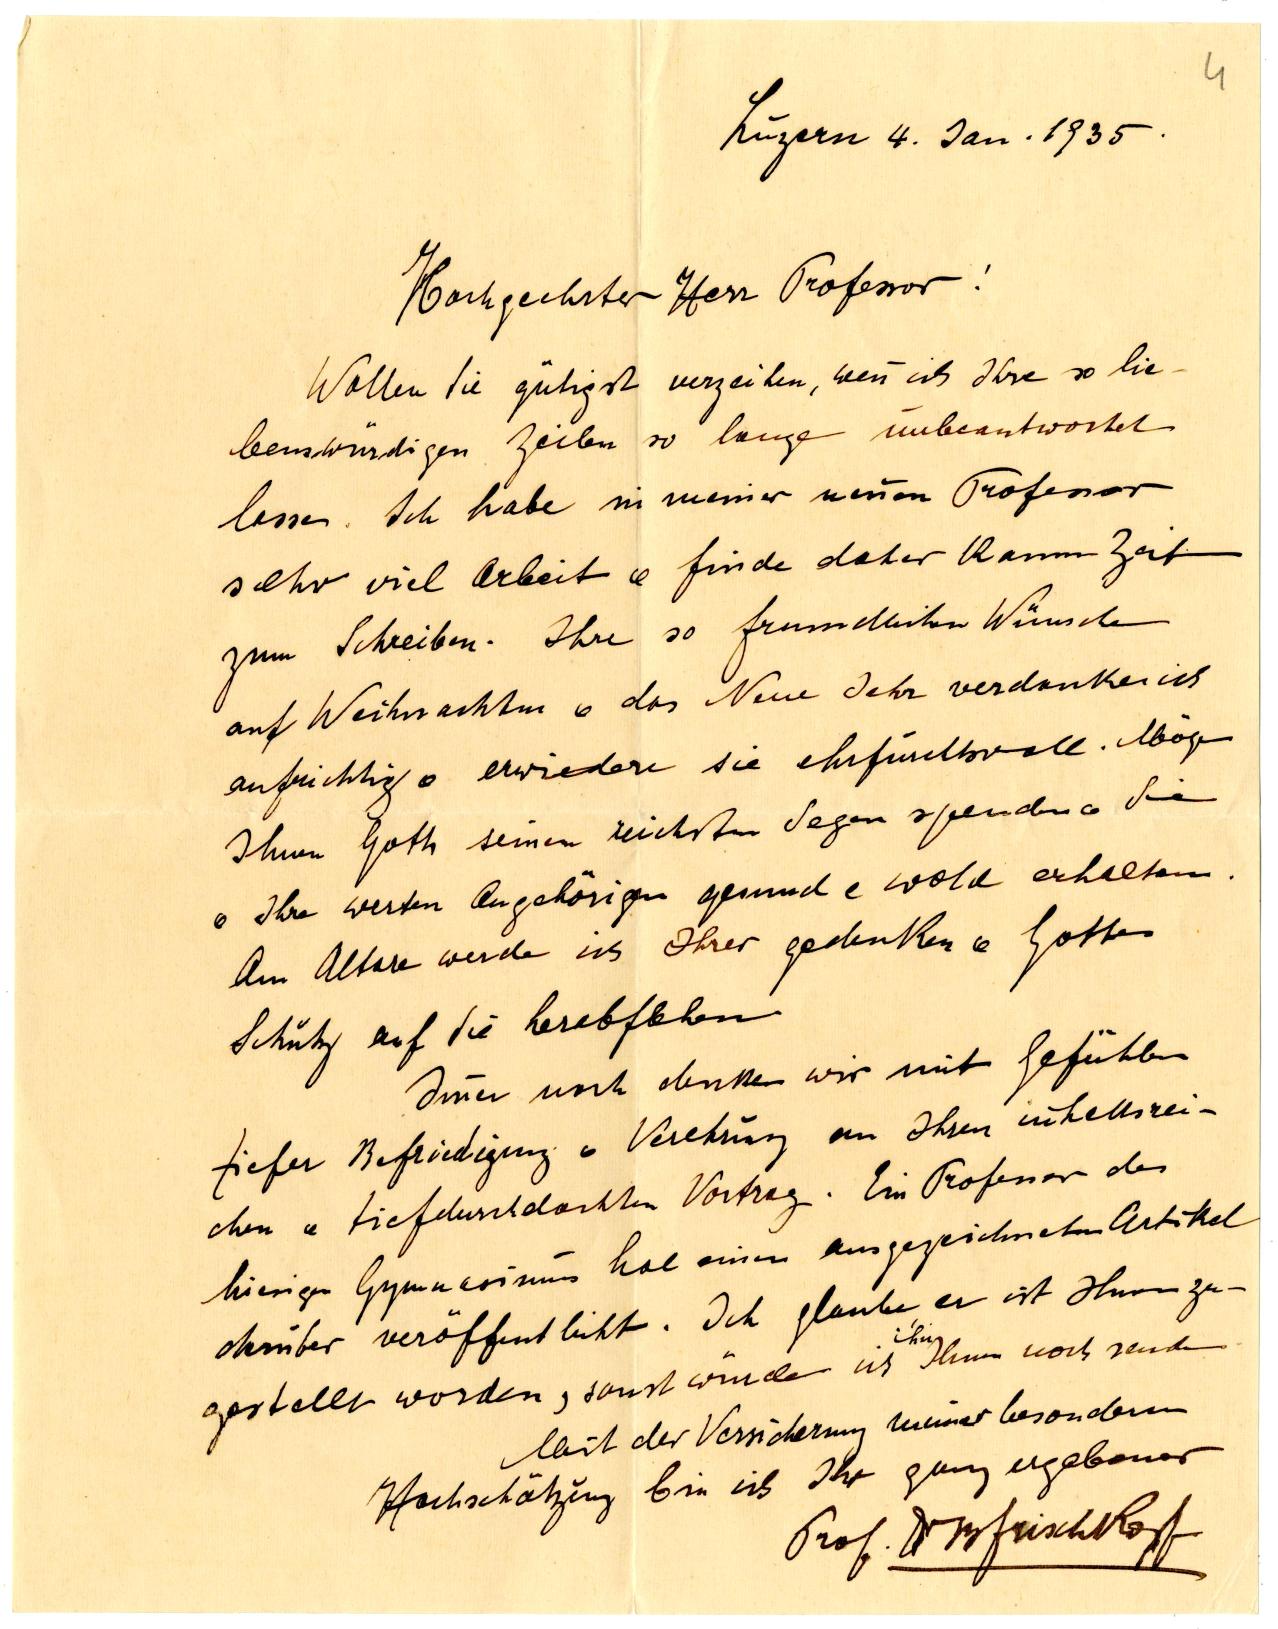 4
Luzern 4. Jan. 1935.
Hochgeehrter Herr Professor!
Wollen Sie gütigst verzeihen, weñ ich Ihre so lie-
benswürdigen Zeilen so lange unbeantwortet
lasse. Ich habe in meiner neuen Professur
sehr viel Arbeit & finde daher kaum Zeit
zum Schreiben. Ihre so freundlichen Wünsche
auf Weihnachten & das Neue Jahr verdanke ich
aufrichtig & erwiedere sie ehrfurchtsvoll. Möge
Ihnen Gott seinen reichsten Segen spenden & Sie
& Ihre werten Angehörigen gesund & wohl erhalten.
Am Altare werde ich Ihrer gedenken & Gottes
Schutz auf Sie herabflehen
Im̃er noch denken wir mit Gefühlen
tiefer Befriedigung & Verehrung an Ihren inhaltsrei-
chen & tiefdurchdachten Vortrag. Ein Professor des
hiesigen Gymnasiums hat einen ausgezeichneten Artikel
darüber veröffentlicht. Ich glaube er ist Ihnen zu-
gestellt worden, sonst würde ich ihn Ihnen noch senden
Mit der Versicherung meiner besonderen
Hochschätzung bin ich Ihr ganz ergebener
Prof. Dr B Frischkopf